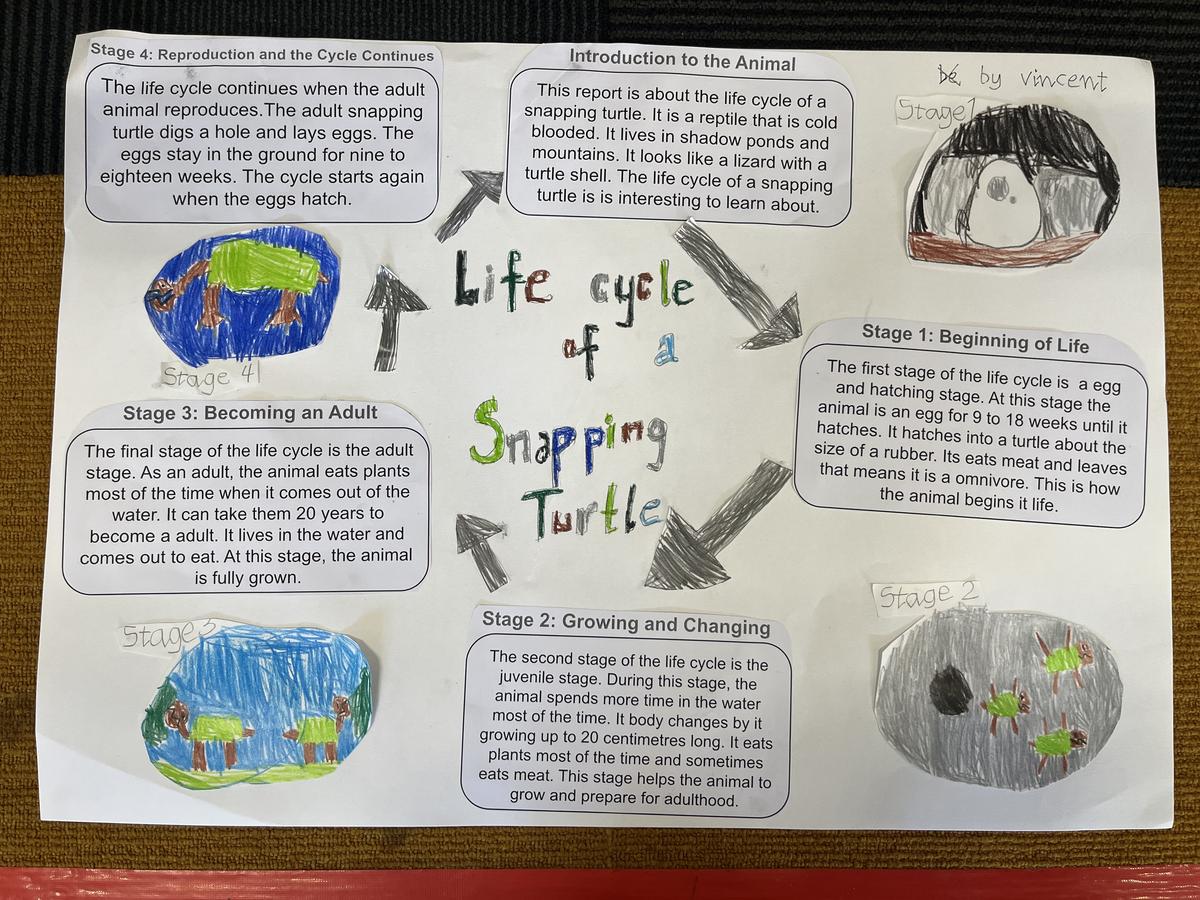 by vincent
Life cycle
of a
Snapping
Turtle
Introduction to the Animal
This report is about the life cycle of a
snapping turtle. It is a reptile that is cold
blooded. It lives in shadow ponds and
mountains. It looks like a lizard with a
turtle shell. The life cycle of a snapping
turtle is is interesting to learn about.
Stage 1
Stage 1: Beginning of Life
The first stage of the life cycle is a egg
and hatching stage. At this stage the
animal is an egg for 9 to 18 weeks until it
hatches. It hatches into a turtle about the
size of a rubber. Its eats meat and leaves
that means it is a omnivore. This is how
the animal begins it life.
Stage 2
Stage 2: Growing and Changing
The second stage of the life cycle is the
juvenile stage. During this stage, the
animal spends more time in the water
most of the time. It body changes by it
growing up to 20 centimetres long. It eats
plants most of the time and sometimes
eats meat. This stage helps the animal to
grow and prepare for adulthood.
Stage 3
Stage 3: Becoming an Adult
The final stage of the life cycle is the adult
stage. As an adult, the animal eats plants
most of the time when it comes out of the
water. It can take them 20 years to
become a adult. It lives in the water and
comes out to eat. At this stage, the animal
is fully grown.
Stage 4
Stage 4: Reproduction and the Cycle Continues
The life cycle continues when the adult
animal reproduces.The adult snapping
turtle digs a hole and lays eggs. The
eggs stay in the ground for nine to
eighteen weeks. The cycle starts again
when the eggs hatch.